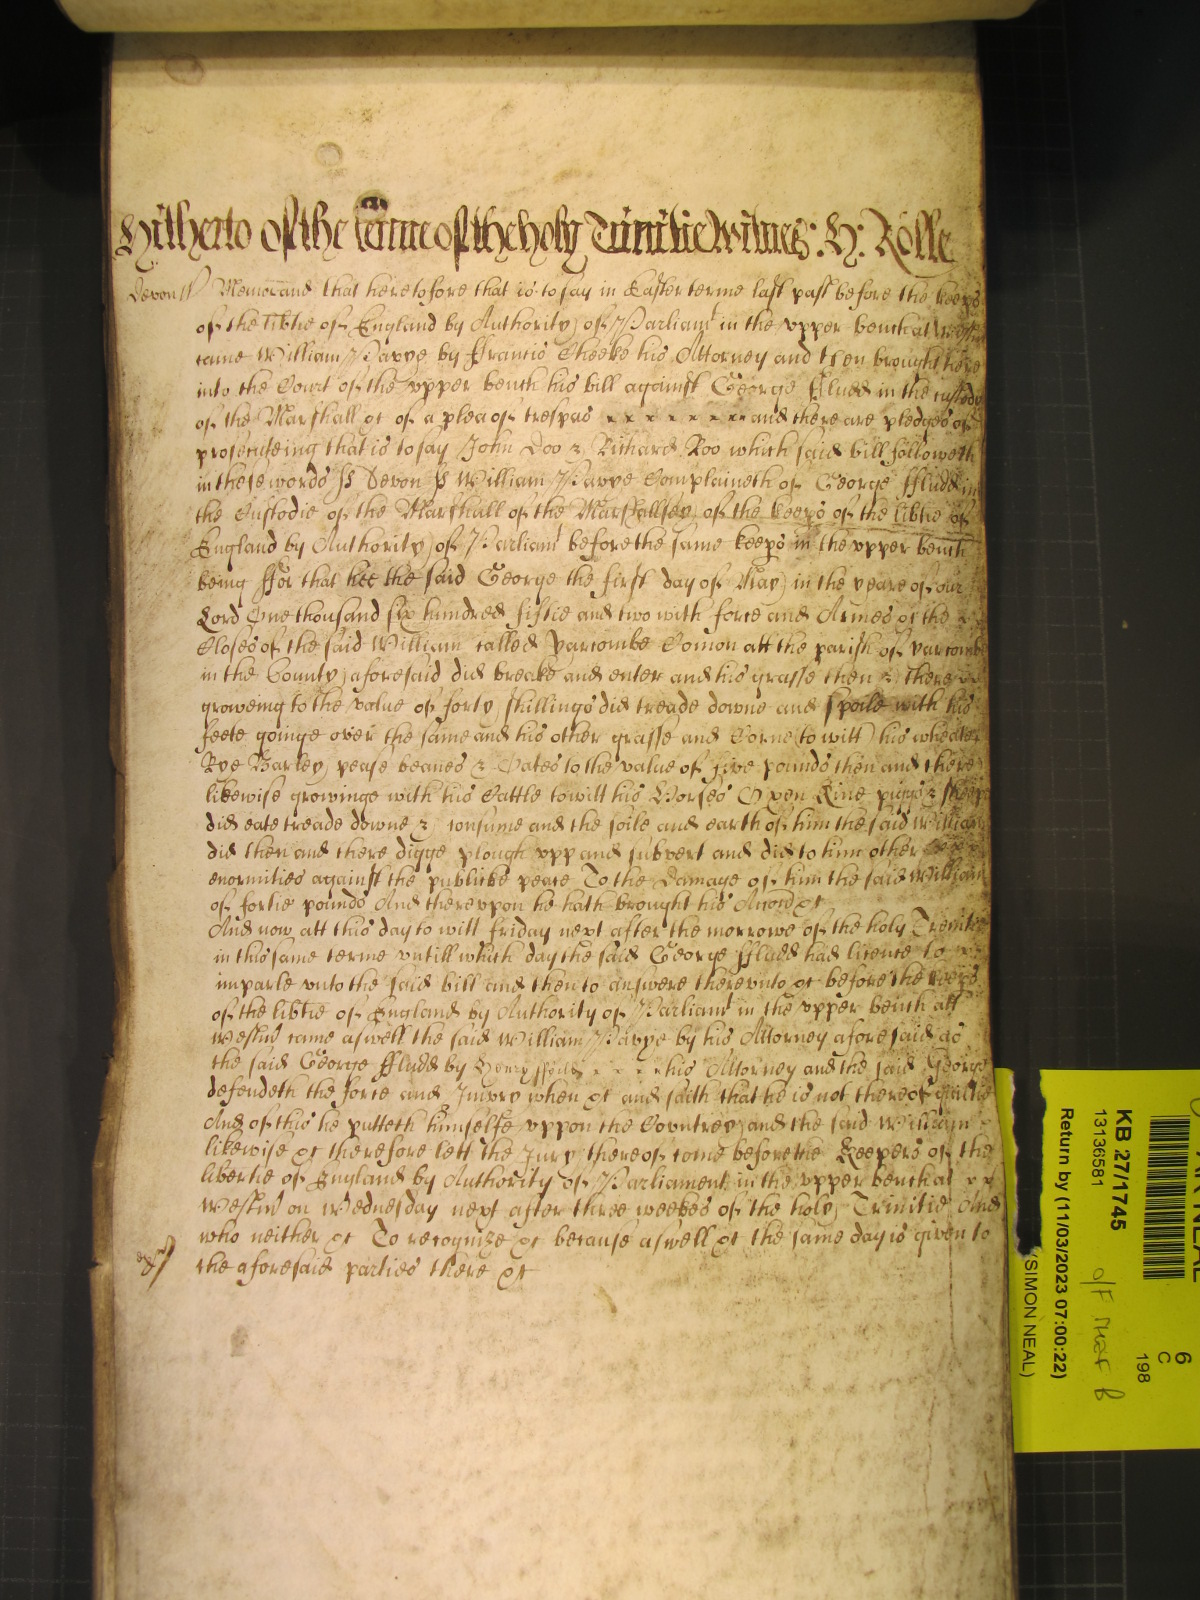 Hitherto of the terme of the holy Trinitie Witnes: H: Rolle
Devon ss Memorand that heretofore that is to say in Easter terme last past before the keeps
of the libtie of England by Authority of Parliamt in the vpper bench at Westm
came William Pavye by Francis Cheeke his Attorney and then brought here
into the Court of the vpper bench his bill against George Fludd in the custody
of the Marshall &c of a plea of trespas and there are pledges of
prosecuteing that is to say John Doo & Richard Roo which said bill followeth
in these words ss Devon ss William Pavye Complaineth of George ffludd in
the Custodie of the Marshall of the Marshallsey of the keeps of the libtie of
England by Authority of Parliamt before the same keeps in the vpper bench
being ffor that hee the said George the first day of May in the yeare of our
Lord One thousand six hundred fiftie and two with force and Armes &c the
Closes of the said William called Yarcombe Comon att the parish of Yarcombe
in the County aforesaid did breake and enter and his grasse then & there
groweing to the value of forty shillings did treade downe and spoile with his
feete goinge over the same and his other grasse and Corne (to witt) his wheate
Rye Barley pease beanes & Oates to the value of five pounds then and there
likewise growinge with his Cattle to witt his Horses Oxen Kine piggs & sheepe
did eate treade downe & consume and the soile and earth of him the said William
did then and there digge plough vpp and subvert and did to him other
enormities against the publicke peace To the Damage of him the said William
of fortie pounds And therevpon he hath brought his &c
And now att this day to witt friday next after the morrowe of the holy Trinitie
in this same terme vntill which day the said George ffludd had licence to
imparle vnto the said bill and then to answere therevnto &c before the keeps
of the libtie of England by Authority of Parliamt in the vpper bench att
Westm came aswell the said William Pavye by his Attorney aforesaid as
the said George ffludd by Henry his Attorney and the said George
defendeth the force and Iniury when &c and saith that he is not thereof guiltie
And of this he putteth himselfe vppon the Countrey and the said William
likewise &c therefore lett the Jury thereof come before the Keepers of the
libertie of England by Authority of Parliament in the vpper bench at
Westm on Wednesday next after three weekes of the holy Trinitie And
who neither &c To recognize &c because aswell &c the same day is given to
the aforesaid parties there &c
KB 27/1745
13136581
Return by (11/03/2023 07:00:22)
(SIMON NEAL)
6
C
198